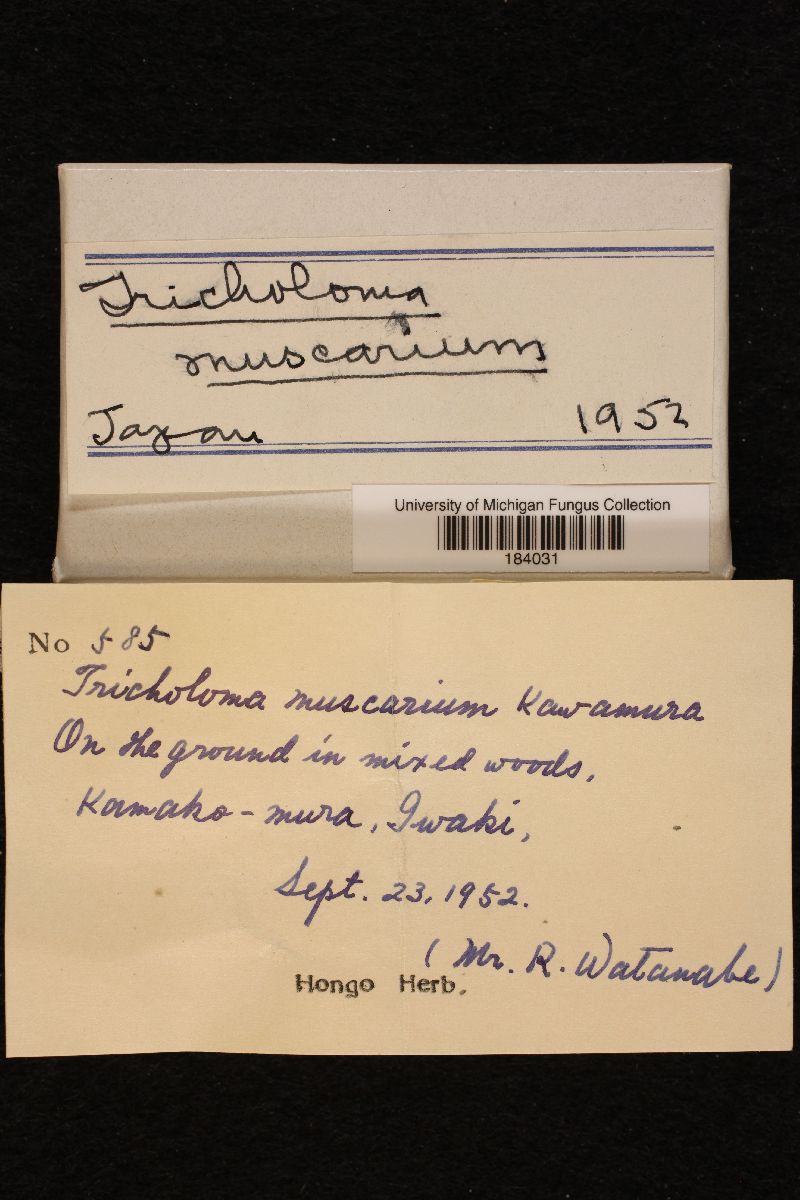 Tricholoma
muscarium
Japan 1952
University of Michigan Fungus Collection
184031
No 585
Tricholoma muscarium Kawamura
On the ground in mixed woods,
Kamako-mura, Iwaki,
Sept. 23, 1952.
(Mr. R. Watanabe)
Hongo Herb.